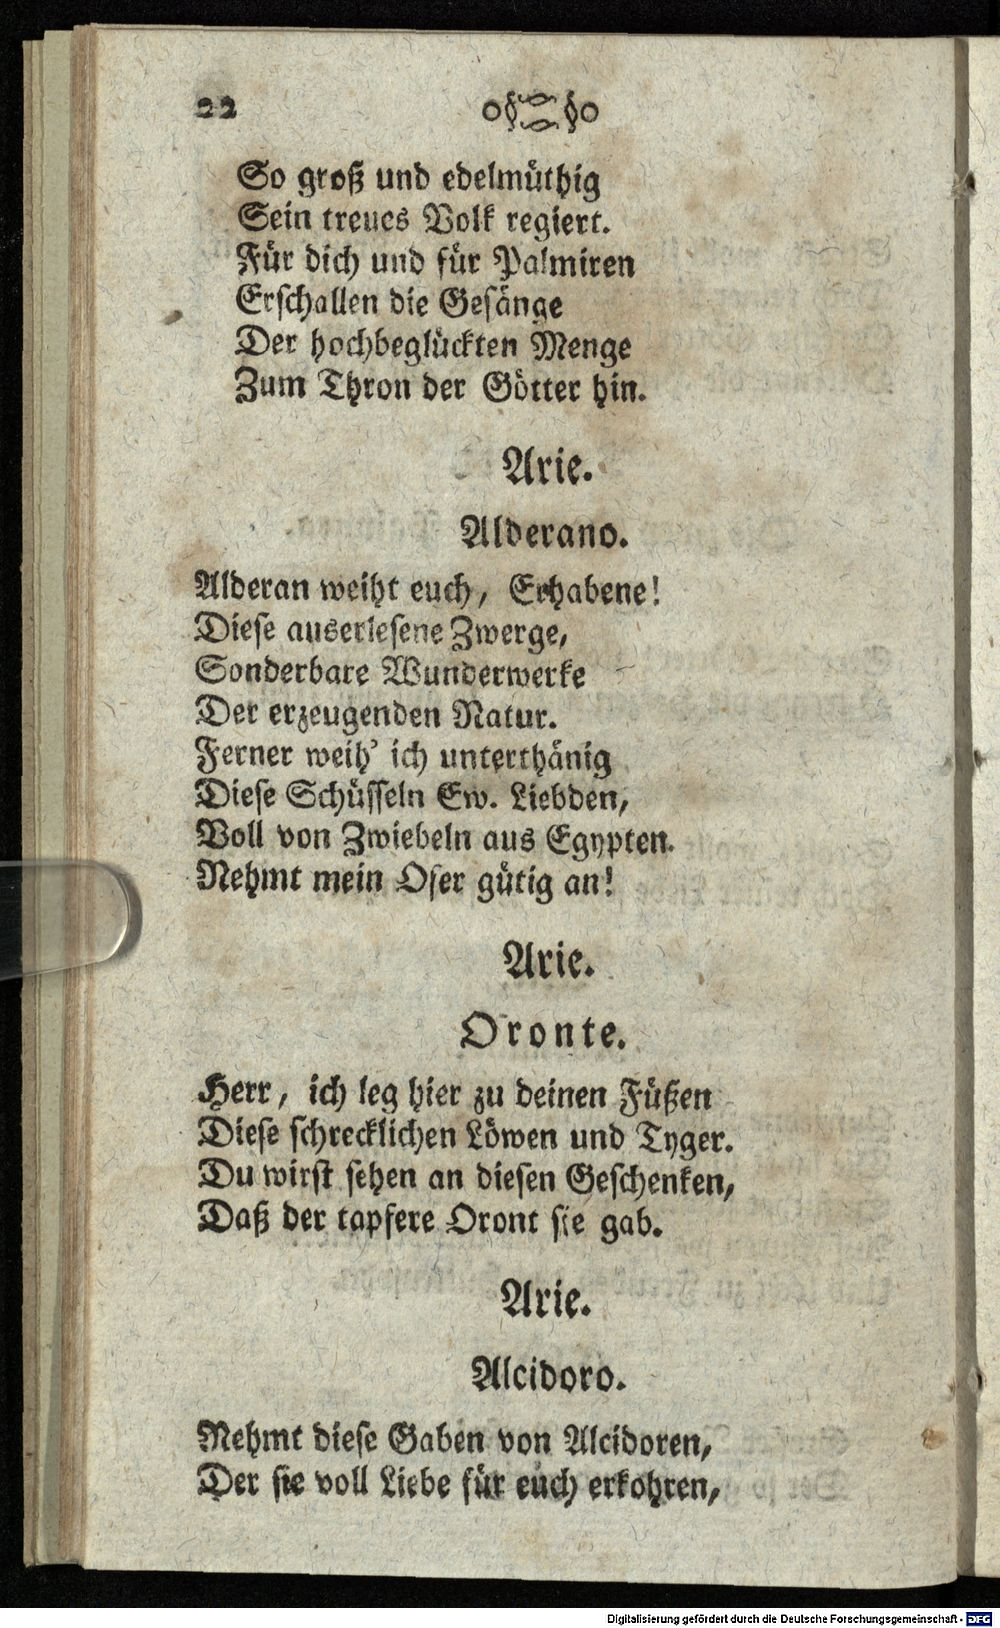 22
So groß und edelmüthig
Sein treues Volk regiert.
Für dich und für Palmiren
Erschallen die Gesänge
Der hochbeglückten Menge
Zum Thron der Götter hin.
Arie.
Alderano.
Alderan weiht euch, Erhabene!
Diese auserlesene Zwerge,
Sonderbare Wunderwerke
Der erzeugenden Natur.
Ferner weih' ich unterthänig
Diese Schüsseln Ew. Liebden,
Voll von Zwiebeln aus Egypten.
Nehmt mein Ofer gütig an!
Arie.
Oronte.
Herr, ich leg hier zu deinen Füßen
Diese schrecklichen Löwen und Tyger.
Du wirst sehen an diesen Geschenken,
Daß der tapfere Oront sie gab.
Arie.
Alcidoro.
Nehmt diese Gaben von Alcidoren,
Der sie voll Liebe für euch erkohren,
Digitalisierung gefördert durch die Deutsche Forschungsgemeinschaft - DFG